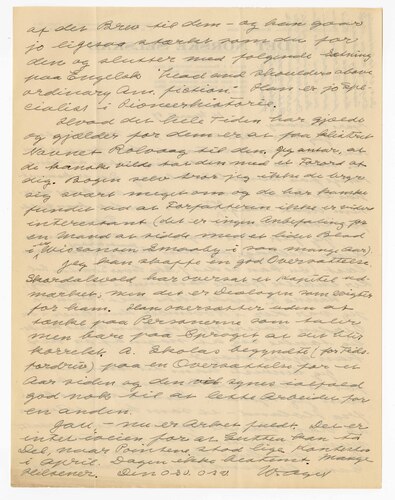 af det Brev til dem - og han gaar
jo ligesaa stærkt som du for
den og slutter med følgende Sætning
paa Engelsk "head and shoulders above
ordinary Am. fiction" Han er jo Spe-
cialist i Pioneerhistorie.
Hvad det hele Tiden har gjældt
og gjælder for dem er at faa klistret
Navnet Rølvaag til den. Jeg antar, at
de kanske vilde ta den med et Forord af
dig. Bogen selv tror jeg ikke de bryr
sig svært meget om og de har kanske
fundet ud at Forfatteren ikke er videre
interessant (det er ingen Anbefaling for
en Mand at sidde med et lidet Blad
i en Wisconsin Smaaby i saa mange Aar)
Jeg kan skaffe en god Oversættelse
Skordalsvold har oversat et Kapitel ud-
mærket, men det er Dialogen som svigter
for ham. Han oversætter uden at
tænke paa Personerne som taler
men bare paa Sproget, at det blir
korrekt. A. begyndte (for Tids-
fordriv) paa en Oversættelse for et
Aar siden og den synes ialfald
god nok til at lette Arbeidet for
en anden.
Jau - nu er Arbeit
for at Gutten kan ta
Del, naar stod lige
i April. Dagen ikke bestemt. Mange
Hilsener. Din W. Ager